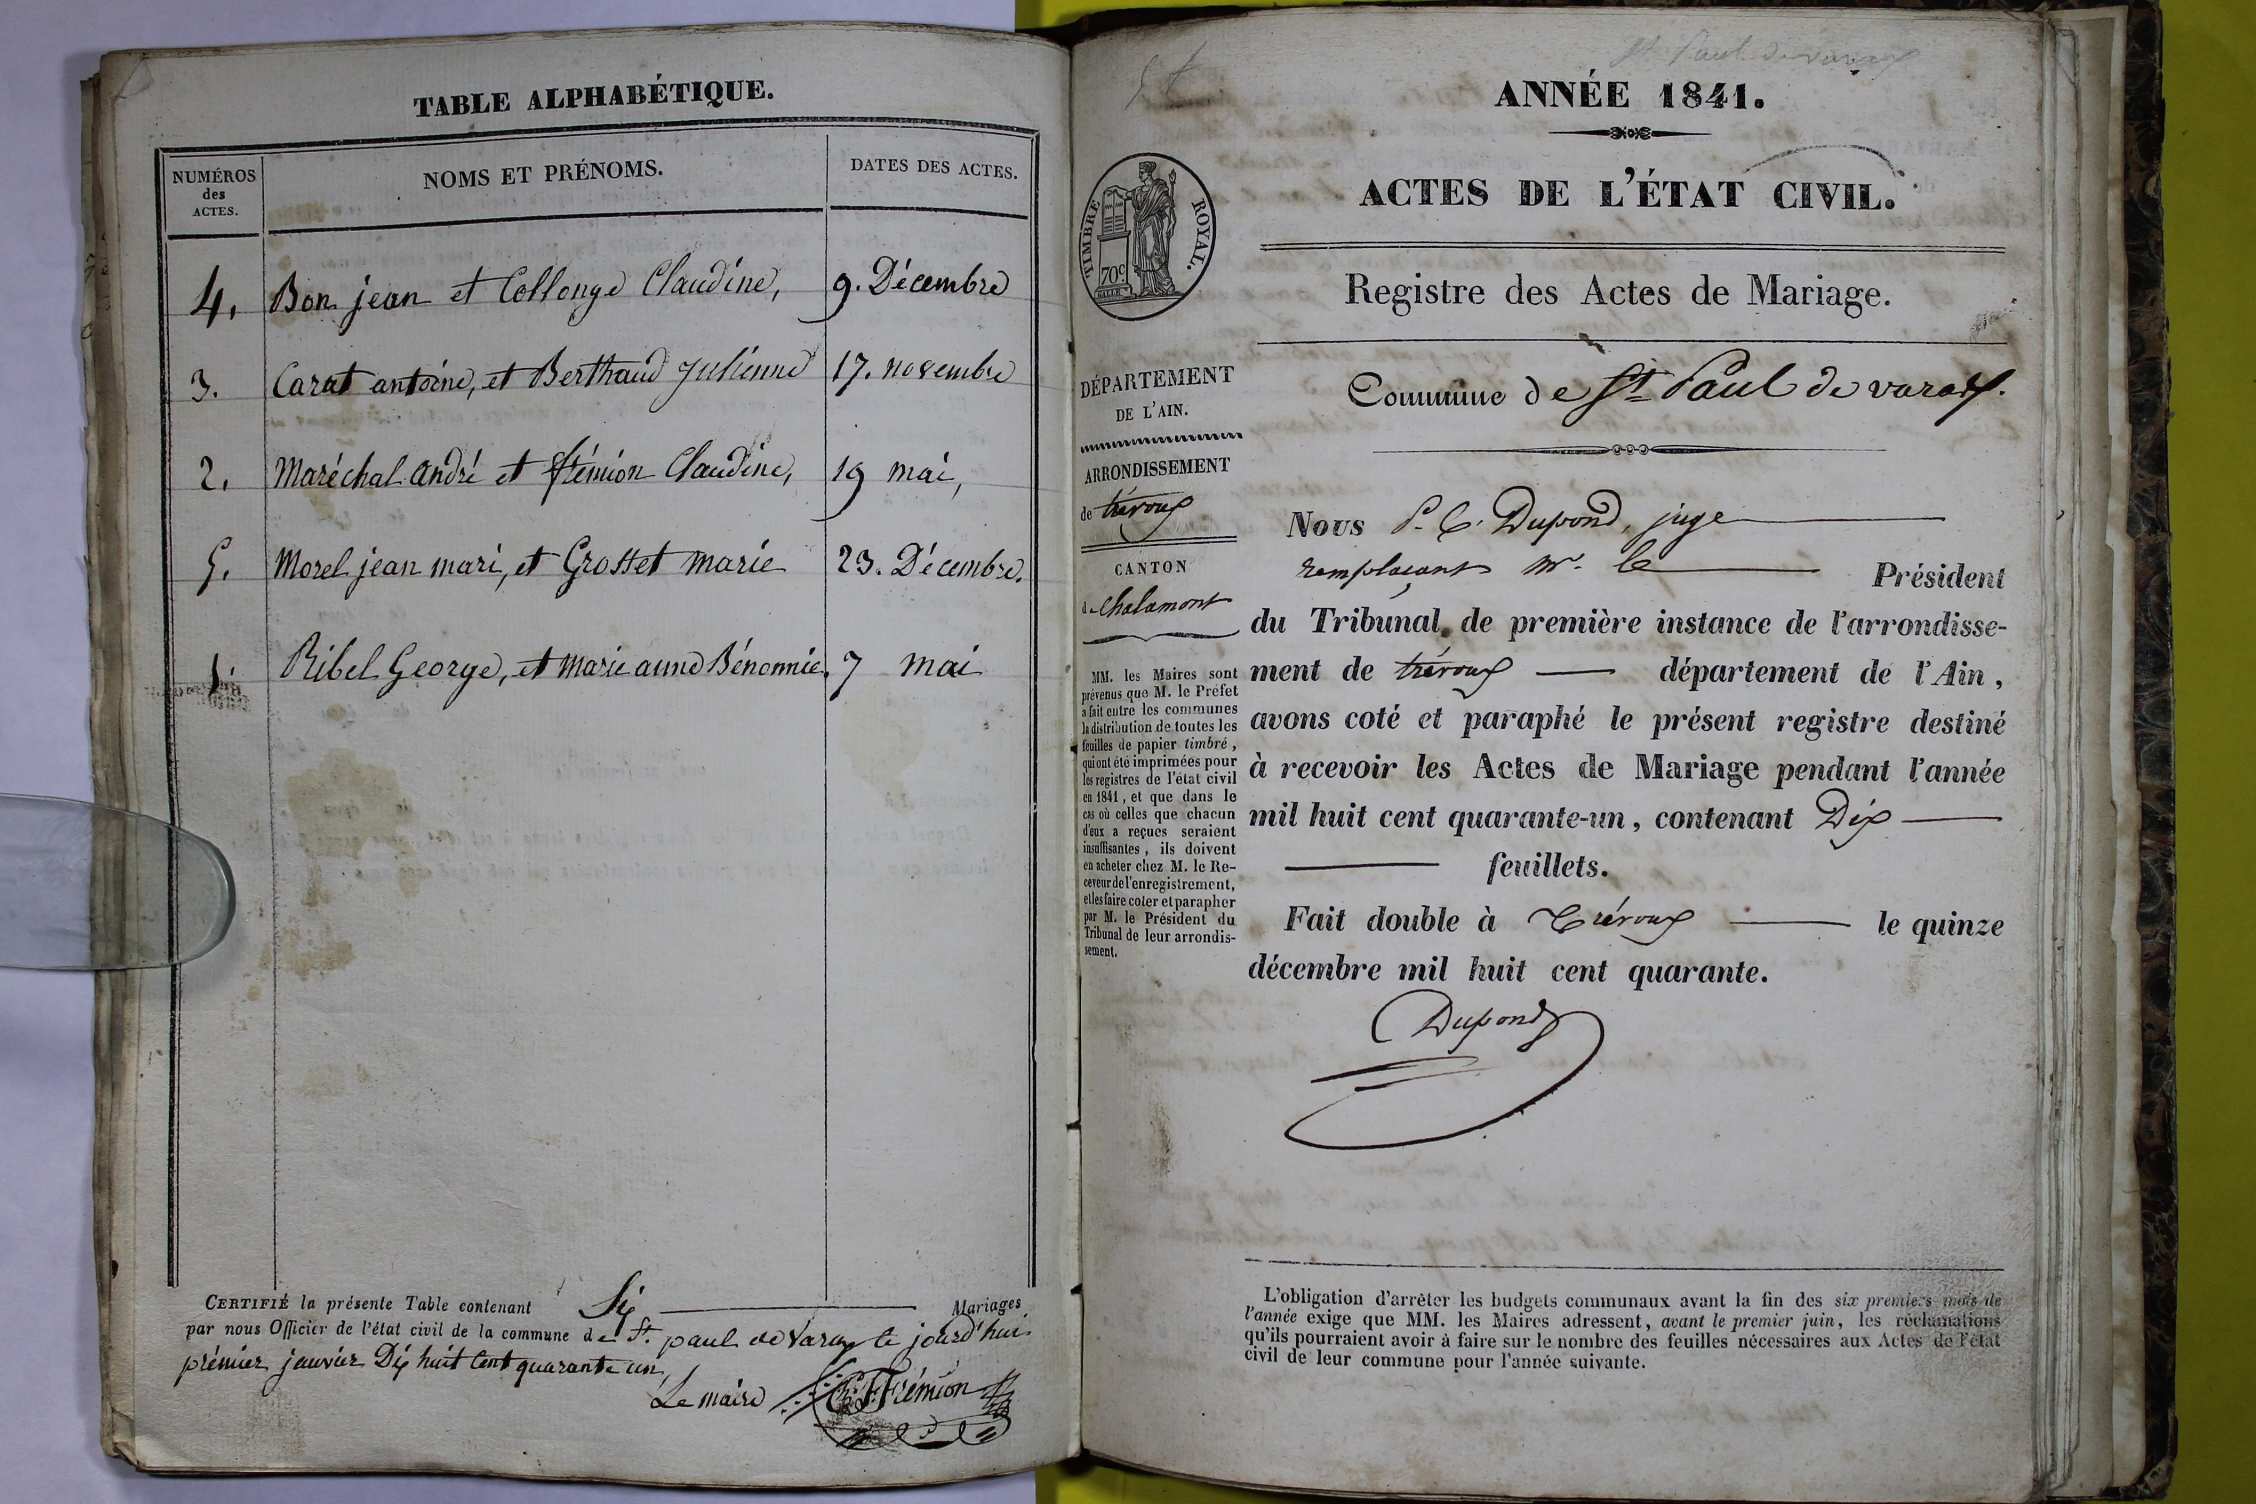 TABLE ALPHABÉTIQUE.
NUMÉROS des ACTES.
NOMS ET PRÉNOMS.
DATES DES ACTES.
4. Bon jean et Collonge Claudine, 9. Décembre
3. Carat antoine, et Berthaud Julienne 17. novembre
2. Maréchal andré et frémion Claudine, 19 mai,
5. Morel jean mari, et Grosset marie 23. Décembre.
1. Ribel George, et marie anne Bénonnie. 7 mai
CERTIFIÉ la présente Table contenant Mariages
par nous Officier de l'état civil de la commune de St. paul de Varax le jourd'hui
prémier janvier Dix huit Cent quarante un,
Le maire Frémion
St Paul de varax
ANNÉE 1841.
ACTES DE L'ÉTAT CIVIL.
TIMBRE ROYAL.
70c
Registre des Actes de Mariage.
Commune de St Paul de varax.
DÉPARTEMENT
DE L'AIN.
ARRONDISSEMENT
de trévoux
CANTON
de Chalamont
MM. les Maires sont
prévenus que M. le Préfet
a fait entre les communes
la distribution de toutes les
feuilles de papier timbré,
qui ont été imprimées pour
les registres de l'état civil
en 1841, et que dans le
cas où celles que chacun
d'eux a reçues seraient
insuffisantes, ils doivent
en acheter chez M. le Re-
ceveur de l'enregistrement,
et les faire coter et parapher
par M. le Président du
Tribunal de leur arrondis-
sement.
Nous P. C. Dupond, juge
remplaçant Mr. le Président
du Tribunal de première instance de l'arrondisse-
ment de trévoux département de l'Ain,
avons coté et paraphé le présent registre destiné
à recevoir les Actes de Mariage pendant l'année
mil huit cent quarante-un, contenant Dix
feuillets.
Fait double à Trévoux le quinze
décembre mil huit cent quarante.
Dupond
L'obligation d'arrêter les budgets communaux avant la fin des six premiers mois de
l'année exige que MM. les Maires adressent, avant le premier juin, les réclamations
qu'ils pourraient avoir à faire sur le nombre des feuilles nécessaires aux Actes de l'état
civil de leur commune pour l'année suivante.